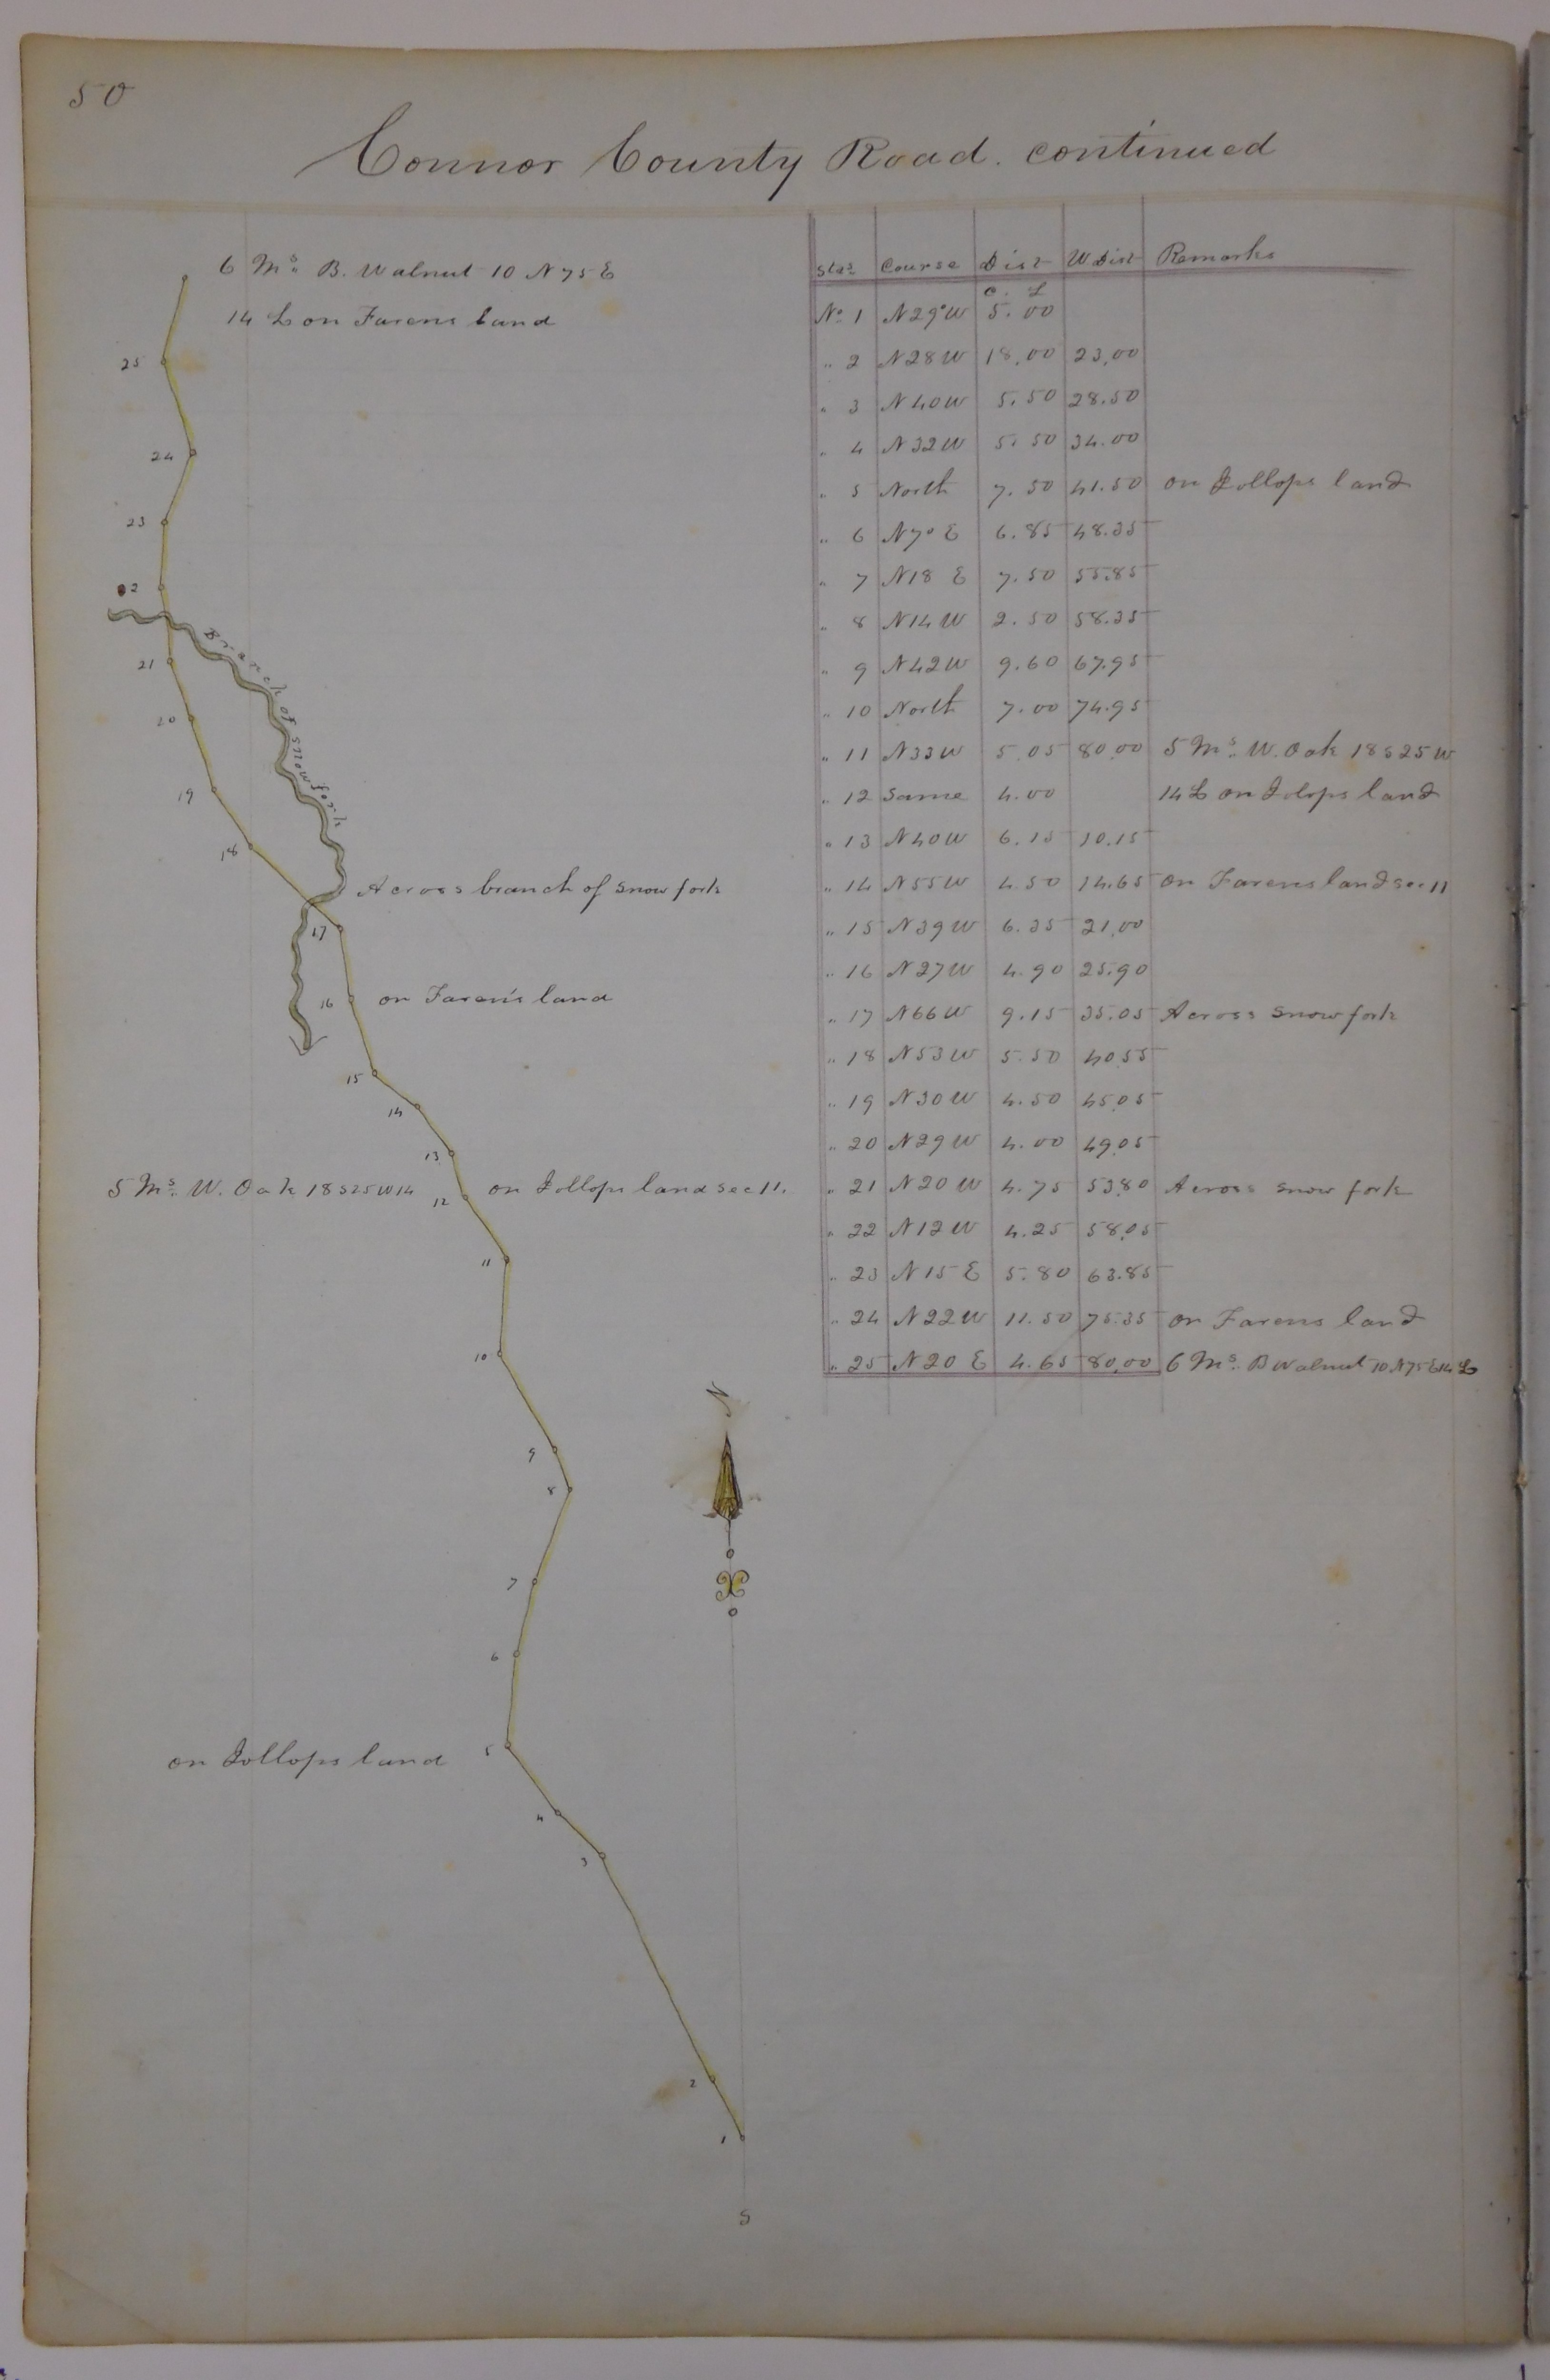 50
Connor County Road. continued
6 Ms. B. Walnut 10 N75E
14 L on Farens land
25
24
23
22
Branch of snow fork
21
20
19
18
Across branch of snow fork
17
16 on Faren's land
15
14
13
5 Ms. W. Oak 18 S25W14 12 on Jollops land sec 11.
11
10
9
8
7
6
on Jollops land 5
4
3
2
1
N
S
Stas Course Dist W Dist Remarks
C. L
No. 1 N29°W 5.00
" 2 N28W 18.00 23.00
" 3 N40W 5.50 28.50
" 4 N32W 5.50 34.00
" 5 North 7.50 41.50 on Jollops land
" 6 N7°E 6.85 48.35
" 7 N18 E 7.50 55.85
" 8 N14W 2.50 58.35
" 9 N42W 9.60 67.95
" 10 North 7.00 74.95
" 11 N33W 5.05 80.00 5 Ms. W. Oak 18 S25W
" 12 Same 4.00 14 L on Jolops land
" 13 N40W 6.15 10.15
" 14 N55W 4.50 14.65 on Farens land sec 11
" 15 N39W 6.35 21.00
" 16 N27W 4.90 25.90
" 17 N66W 9.15 35.05 Across snow fork
" 18 N53W 5.50 40.55
" 19 N30W 4.50 45.05
" 20 N29W 4.00 49.05
" 21 N20W 4.75 53.80 Across snow fork
" 22 N12W 4.25 58.05
" 23 N15 E 5.80 63.85
" 24 N22W 11.50 75.35 on Farens land
" 25 N20 E 4.65 80.00 6 Ms. B Walnut 10 N75E14 L